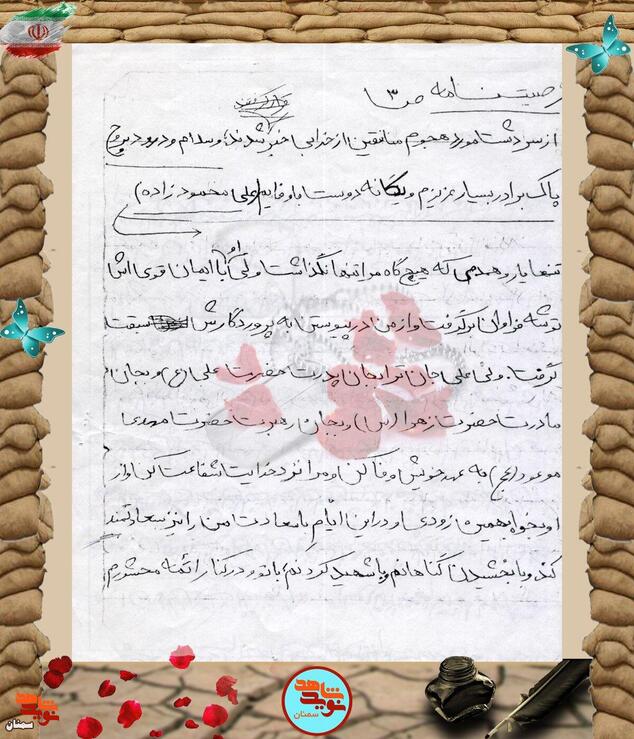 وصیت نامه ص ۳
قرار گرفتند
از سردشت مورد هجوم منافقین از خدا بی خبر شدند؛ و سلام و درود بر روح
پاک برادر بسیار عزیزم و یگانه دوست باوفایم (علی محمودزاده)
تنها یار و همدمی که هیچ گاه مرا تنها نگذاشت ولی او با ایمان قوی اش
توشه فراوان برگرفت و از من در پیوستن به پروردگارش سبقت
گرفت. ولی علی جان ترا بجان پدرت حضرت علی (ع) و بجان
مادرت حضرت زهرا (س) و بجان رهبرت حضرت مهدی
موعود (عج) به عهد خویش وفا کن و مرا نزد خدایت شفاعت کن و از
او بخواه بهمین زودی و در این ایام با سعادت من را نیز سعادتمند
کند و با بخشیدن گناهانم و با شهید کردنم، با تو و در کنار ائمه محشورم
نوید شاهد
سمنان
نوید شاهد
سمنان